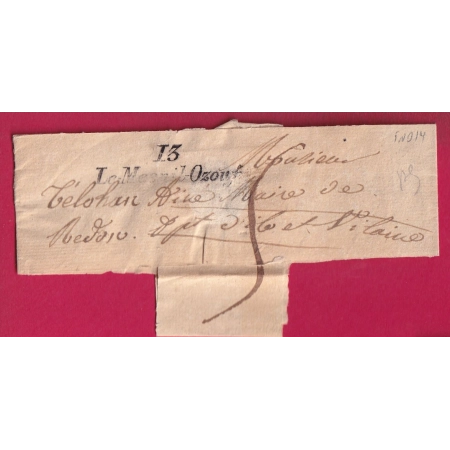 13
Le Mesnil-Ozouf
Monsieur
Télohan Maire de
Redon. Dpt d'ile et Vilaine
5